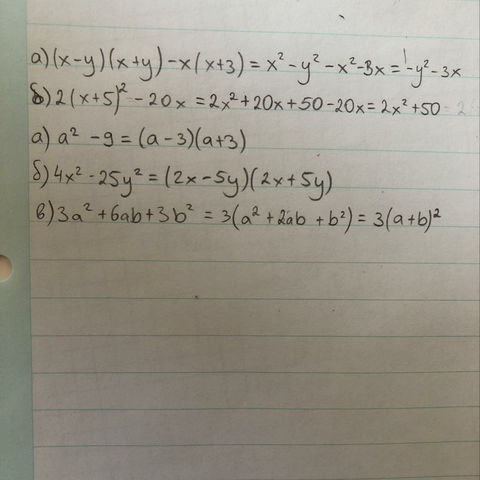 а) (x-y)(x+y)-x(x+3) = x² - y² - x² - 3x = -y² - 3x
б) 2(x+5)² - 20x = 2x² + 20x + 50 - 20x = 2x² + 50
а) a² - 9 = (a-3)(a+3)
б) 4x² - 25y² = (2x - 5y)(2x + 5y)
в) 3a² + 6ab + 3b² = 3(a² + 2ab + b²) = 3(a+b)²